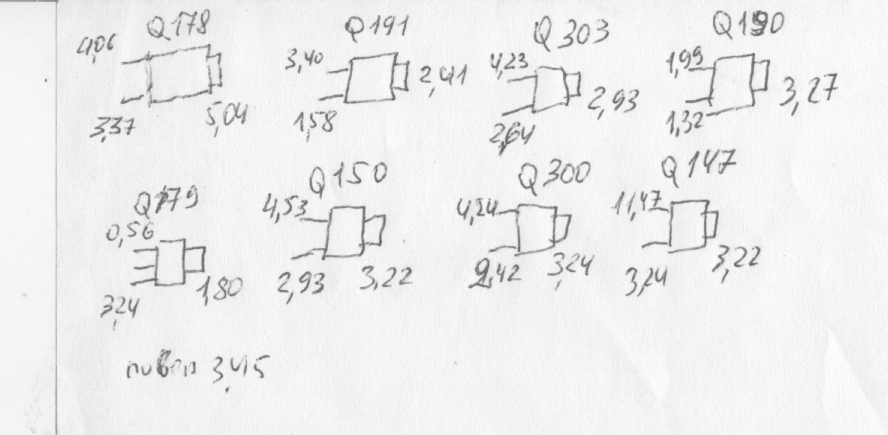 Q178 Q191 Q303 Q190
4,06 3,40 4,23 1,99
2,41 2,93 3,27
3,37 5,04 1,58 2,64 1,32
Q179 Q150 Q300 Q147
0,56 4,53 4,24 11,47
3,24 1,80 2,93 3,22 2,42 3,24 3,24 3,22
3,45